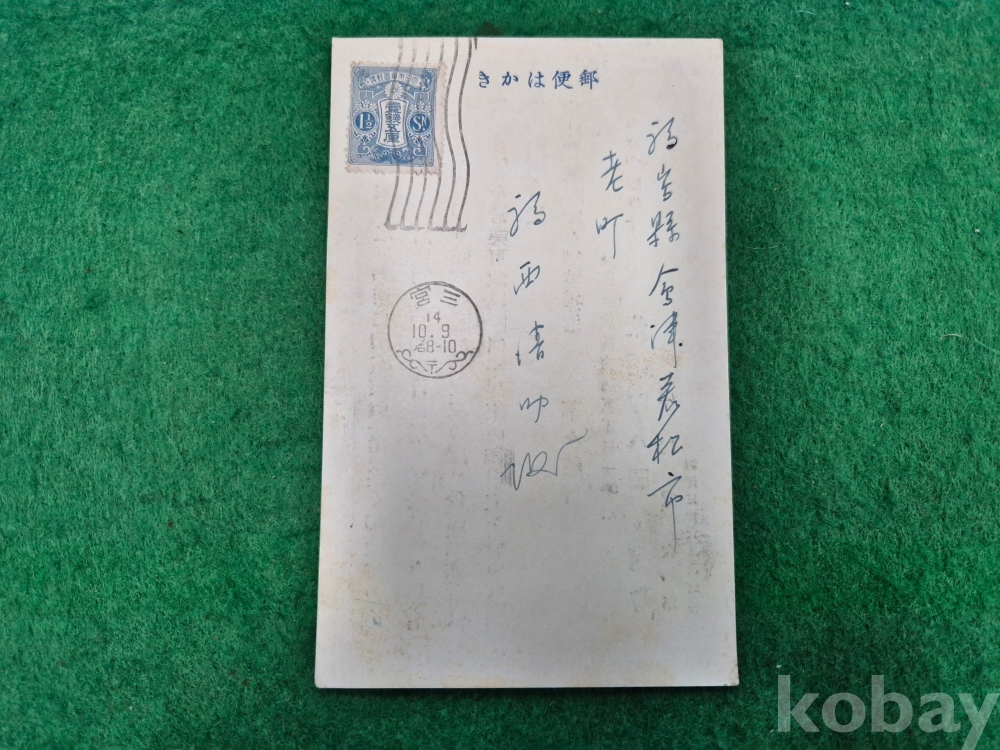 きかは便郵
大日本帝國郵便
壹錢五厘
1½ Sn
福島縣會津若松市
老町
福西清
殿
三宮
14
10.9
后8-10
〒
kobay